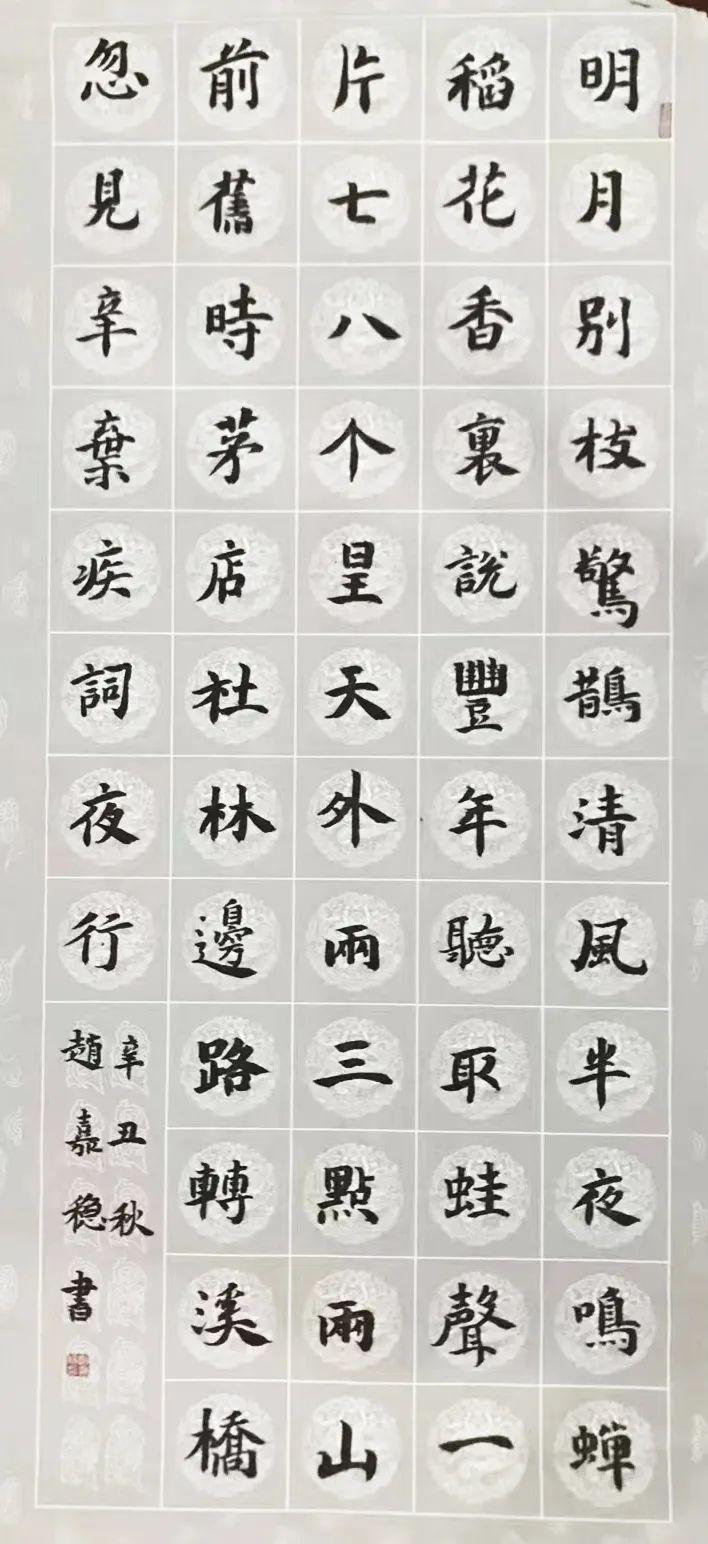 明月别枝驚鵲清風半夜鳴蝉
稻花香裏說豐年聽取蛙聲一
片七八个星天外兩三點雨山
前舊時茅店社林邊路轉溪橋
忽見辛棄疾詞夜行
辛丑秋
趙嘉稳書